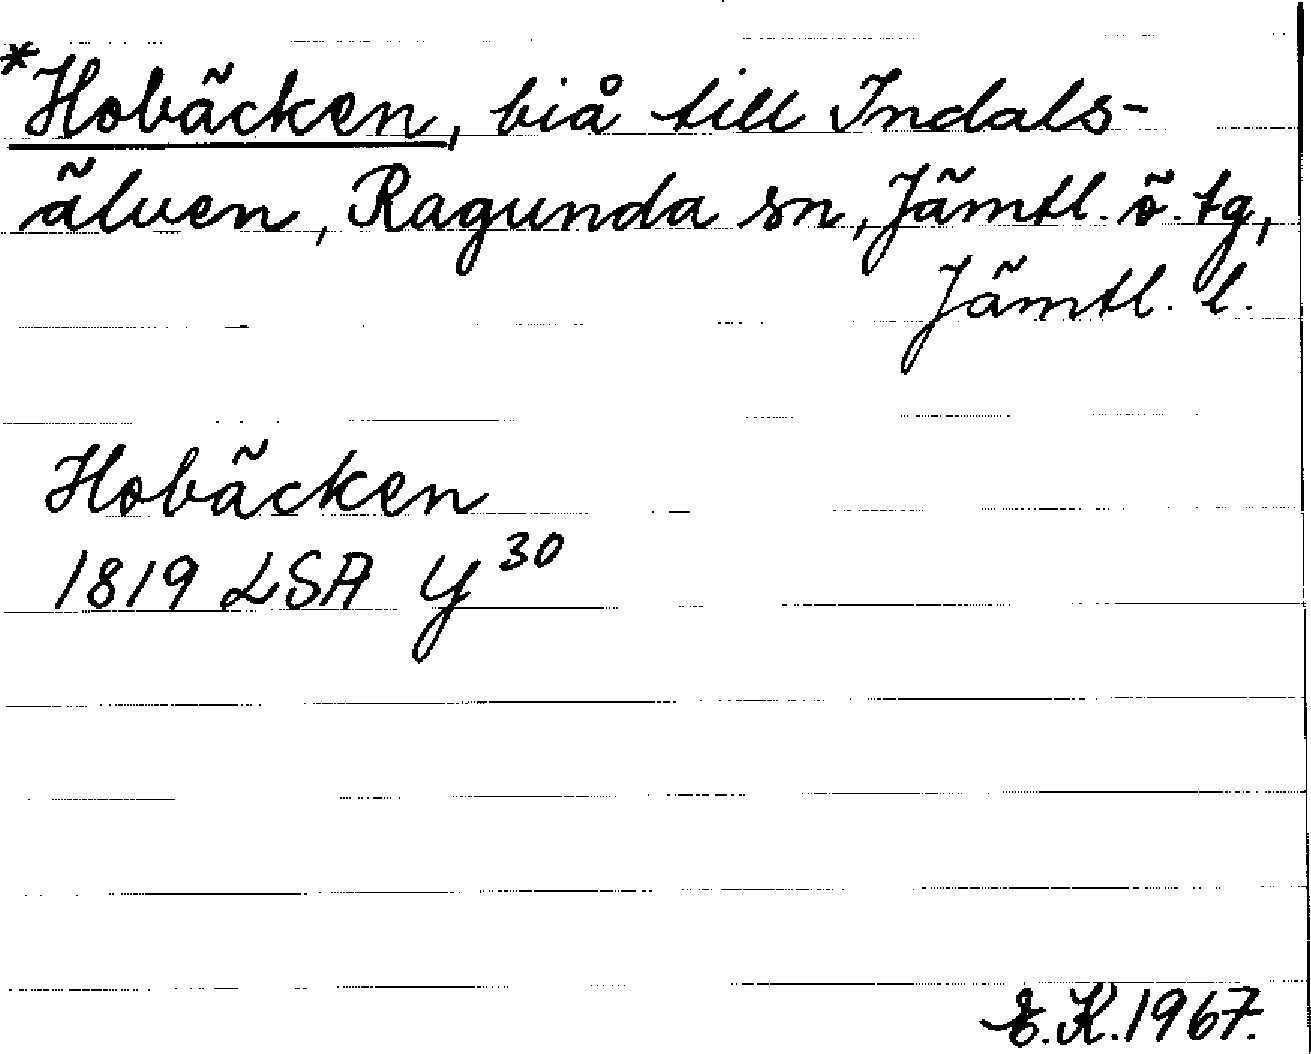 *Hobäcken, biå till Indals-
älven, Ragunda sn, Jämtl. ö. tg,
Jämtl. l.
Hobäcken
1819 LSA Y 30
E.K. 1967.